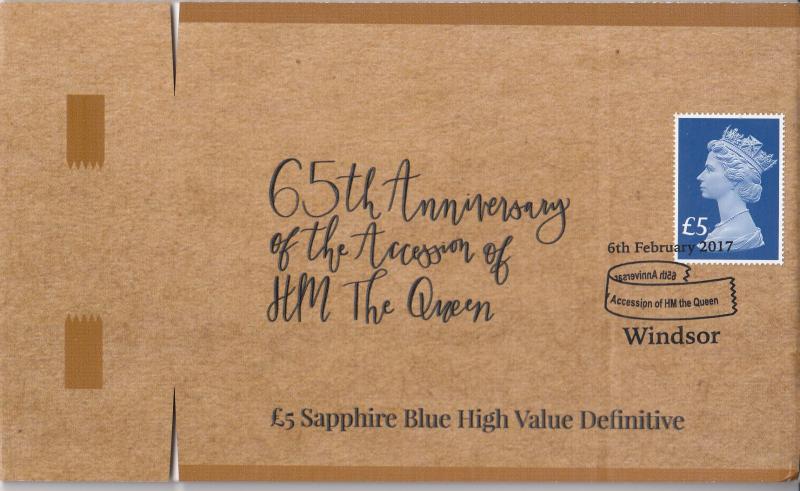 65th Anniversary
of the Accession of
HM The Queen
£5
6th February 2017
65th Anniversary
Accession of HM the Queen
Windsor
£5 Sapphire Blue High Value Definitive